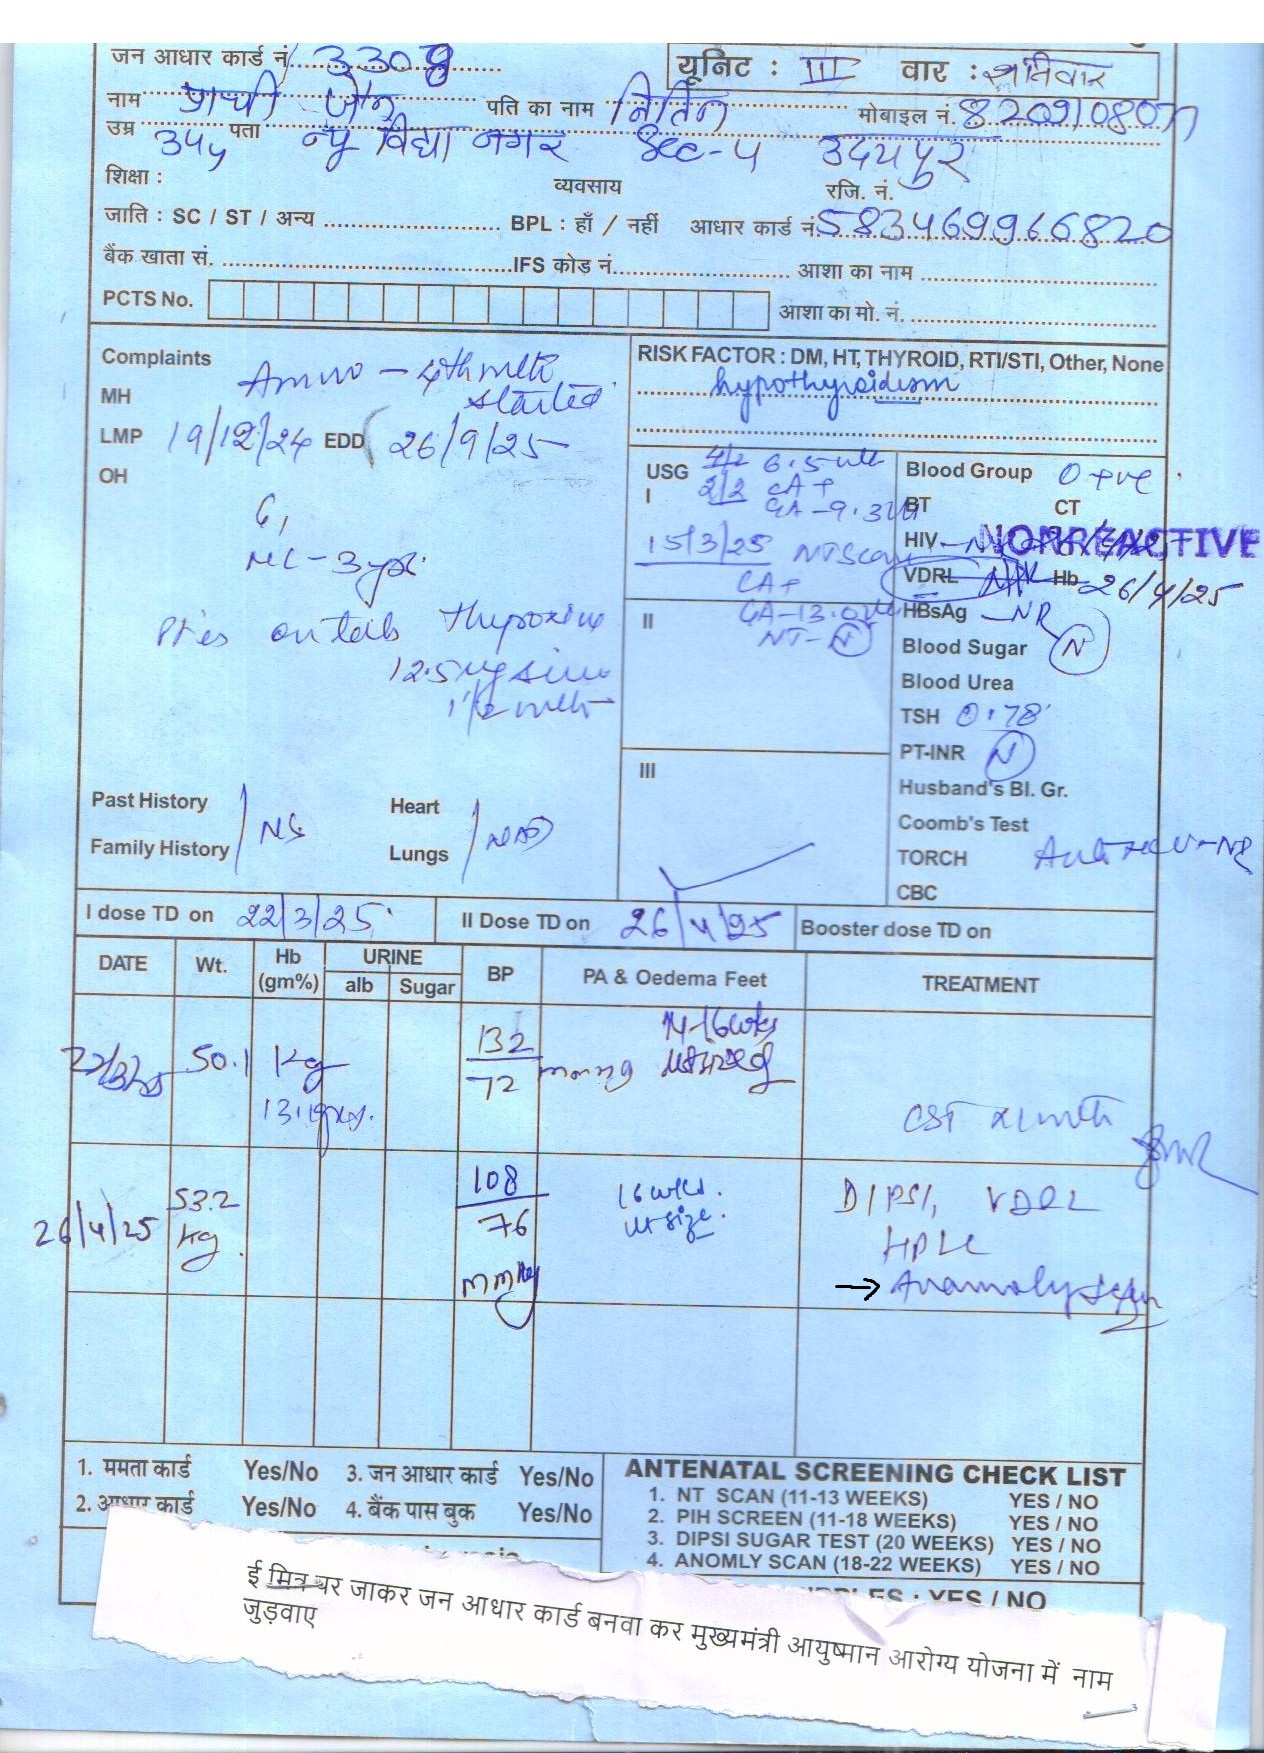 जन आधार कार्ड नं. 3308
यूनिट : III वार : शनिवार
नाम प्राची जैन पति का नाम नितिन मोबाइल नं.
उम्र 34y पता न्यू विद्या नगर Sec-4 उदयपुर
शिक्षा : व्यवसाय रजि. नं.
जाति : SC / ST / अन्य BPL : हाँ / नहीं आधार कार्ड नं. 583469966820
बैंक खाता सं. IFS कोड नं. आशा का नाम
PCTS No. आशा का मो. नं.
Complaints
Amno - 4th mth
started
MH
LMP 19/12/24 EDD 26/9/25
OH
G1
ML - 3 yrs.
Pt is on tab Thyroxine
12.5 mg since
1 1/2 mth
Past History
Family History
NS
Heart
Lungs
NAD
RISK FACTOR : DM, HT, THYROID, RTI/STI, Other, None
hypothyroidism
USG
I
6.5 wk
2/2 CA+
GA-9.3
15/3/25 NT Scan
CA+
II
GA-13.
NT-N
III
Blood Group O +ve
BT CT
HIV
NONREACTIVE
VDRL Hb 26/4/25
HBsAg - NR
Blood Sugar N
Blood Urea
TSH 0.78
PT-INR N
Husband's Bl. Gr.
Coomb's Test
TORCH
Anti HCV-NR
CBC
I dose TD on 22/3/25 II Dose TD on 26/4/25 Booster dose TD on
DATE Wt. Hb (gm%) URINE alb Sugar BP PA & Oedema Feet TREATMENT
22/3/25 50.1 Kg 132/72 mmHg 14-16 wks
13.1 gm.
CST x 1 mth
26/4/25 53.2 kg 108/76 mmHg 16 wks.
ut size.
DIPSI, VDRL
HPLC
→ Anamoly Scan
1. ममता कार्ड Yes/No 3. जन आधार कार्ड Yes/No
2. आधार कार्ड Yes/No 4. बैंक पास बुक Yes/No
ANTENATAL SCREENING CHECK LIST
1. NT SCAN (11-13 WEEKS) YES / NO
2. PIH SCREEN (11-18 WEEKS) YES / NO
3. DIPSI SUGAR TEST (20 WEEKS) YES / NO
4. ANOMLY SCAN (18-22 WEEKS) YES / NO
: YES / NO
ई मित्र पर जाकर जन आधार कार्ड बनवा कर मुख्यमंत्री आयुष्मान आरोग्य योजना में नाम
जुड़वाए